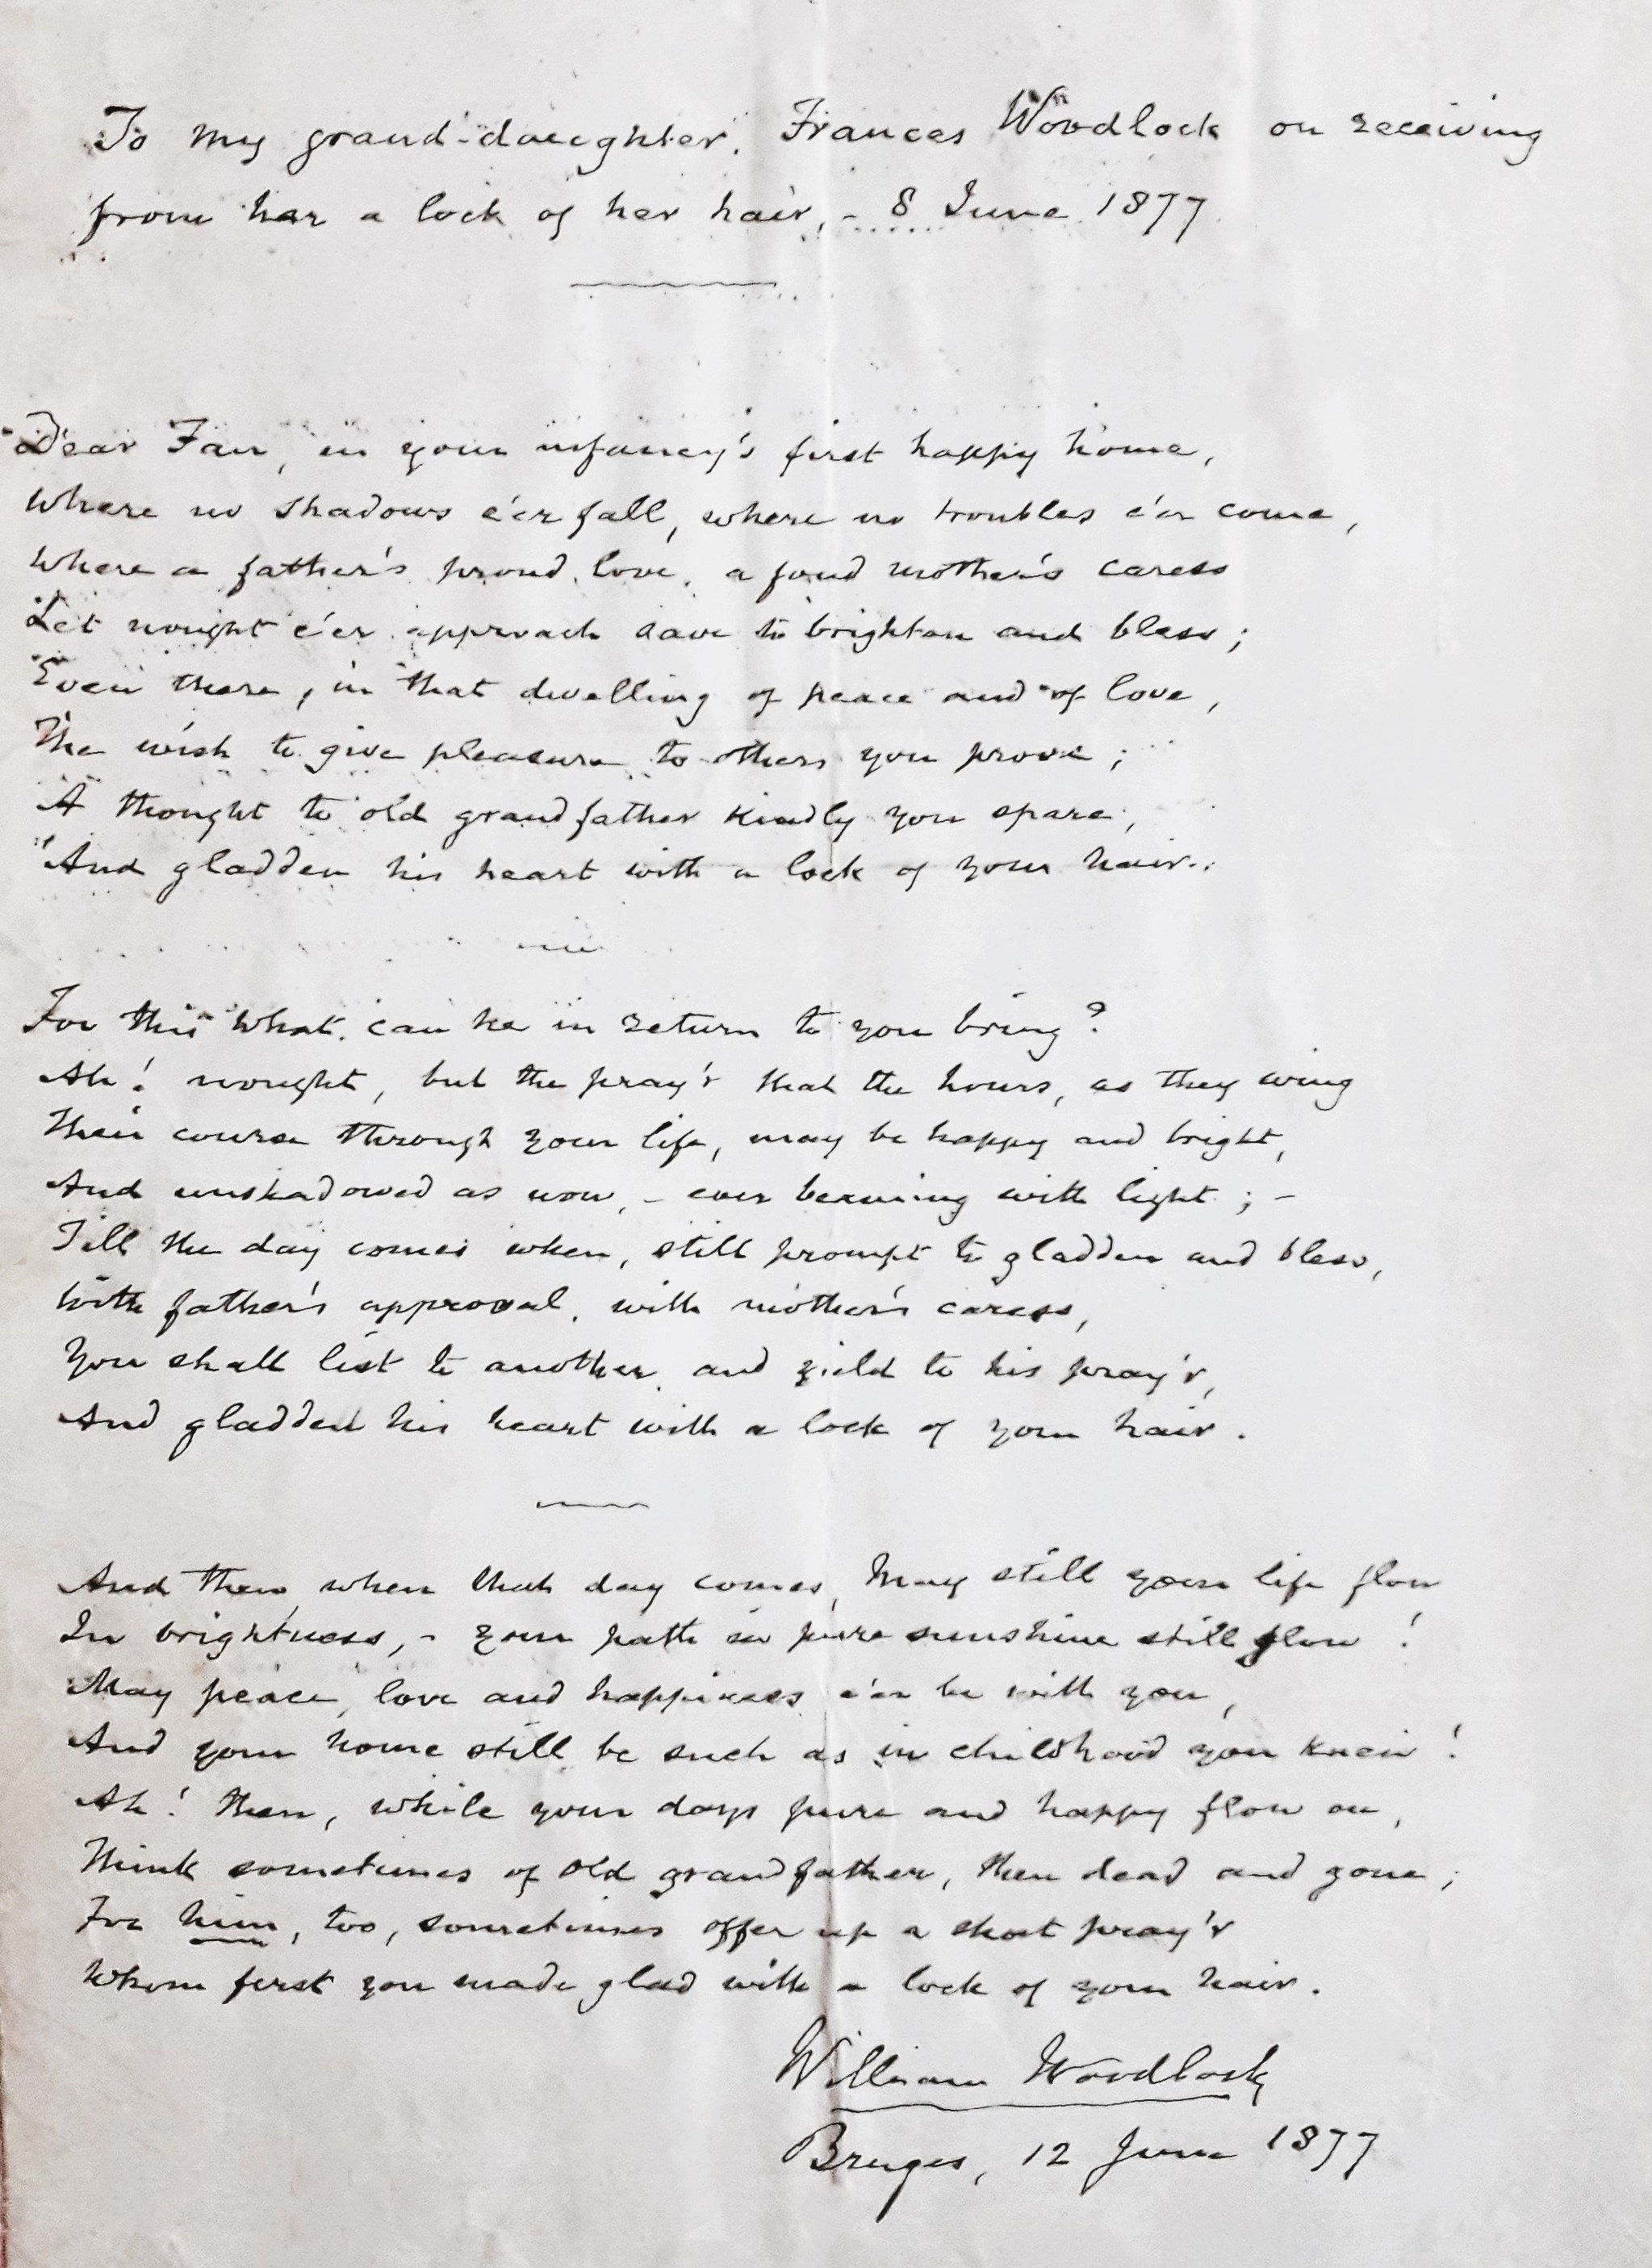 To my grand-daughter, Frances Woodlock on receiving
from her a lock of her hair, - 8 June 1877
Dear Fan, in your infancy's first happy home,
Where no shadows e'er fall, where no troubles e'er come,
Where a father's proud love, a fond mother's caress
Let nought e'er approach save to brighten and bless;
Even there, in that dwelling of peace and of love,
The wish to give pleasure to others you prove;
A thought to old grandfather kindly you spare,
And gladden his heart with a lock of your hair.
For this what can he in return to you bring?
Ah! nought, but the pray'r that the hours, as they wing
Their course through your life, may be happy and bright,
And unshadowed as now, - ever beaming with light; -
Till the day comes when, still prompt to gladden and bless,
With father's approval, with mother's caress,
You shall list to another, and yield to his pray'r,
And gladden his heart with a lock of your hair.
And then, when that day comes, may still your life flow
In brightness, - your path in pure sunshine still glow!
May peace, love and happiness e'er be with you,
And your home still be such as in childhood you knew!
Ah! then, while your days pure and happy flow on,
Think sometimes of old grandfather, then dead and gone;
For him, too, sometimes offer up a short pray'r
Whom first you made glad with a lock of your hair.
William Woodlock
Bruges, 12 June 1877